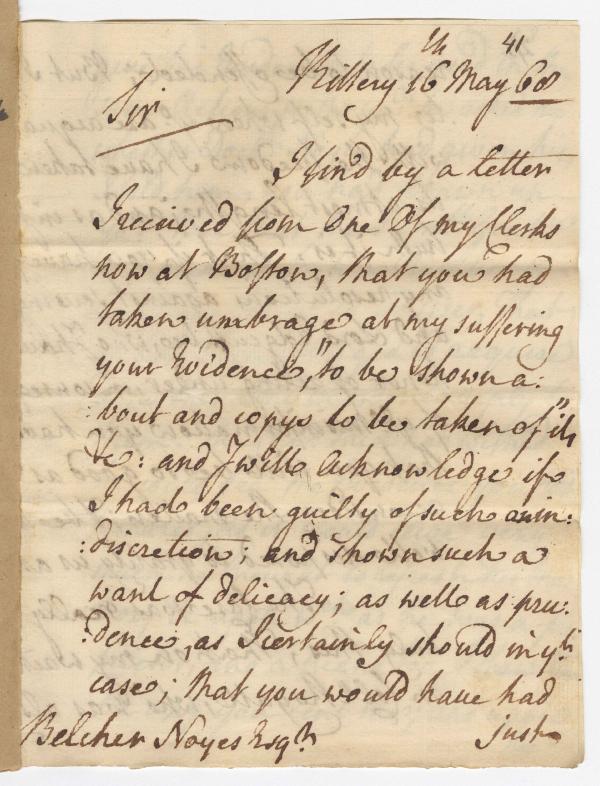 41
Kittery 16th May 68
Sir
I find by a letter
I received from One Of my Clerks
now at Boston, that you had
taken umbrage at my suffering
your Evidence, "to be shown a:
:bout and copys to be taken of "it,
&c: and I will acknowledge if
I had been guilty of such an in:
:discretion; and shown such a
want of delicacy; as well as pru:
:dence, as I certainly should in yt
case; that you would have had
just
Belcher Noyes Esqr